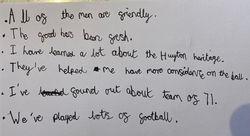 .All of the men are friendly.
. The food has been fresh.
. I have learned a lot about the Huyton heritage.
. They've helped me have more considering on the ball.
. I've found out about team of 71.
. We've played lots of football.